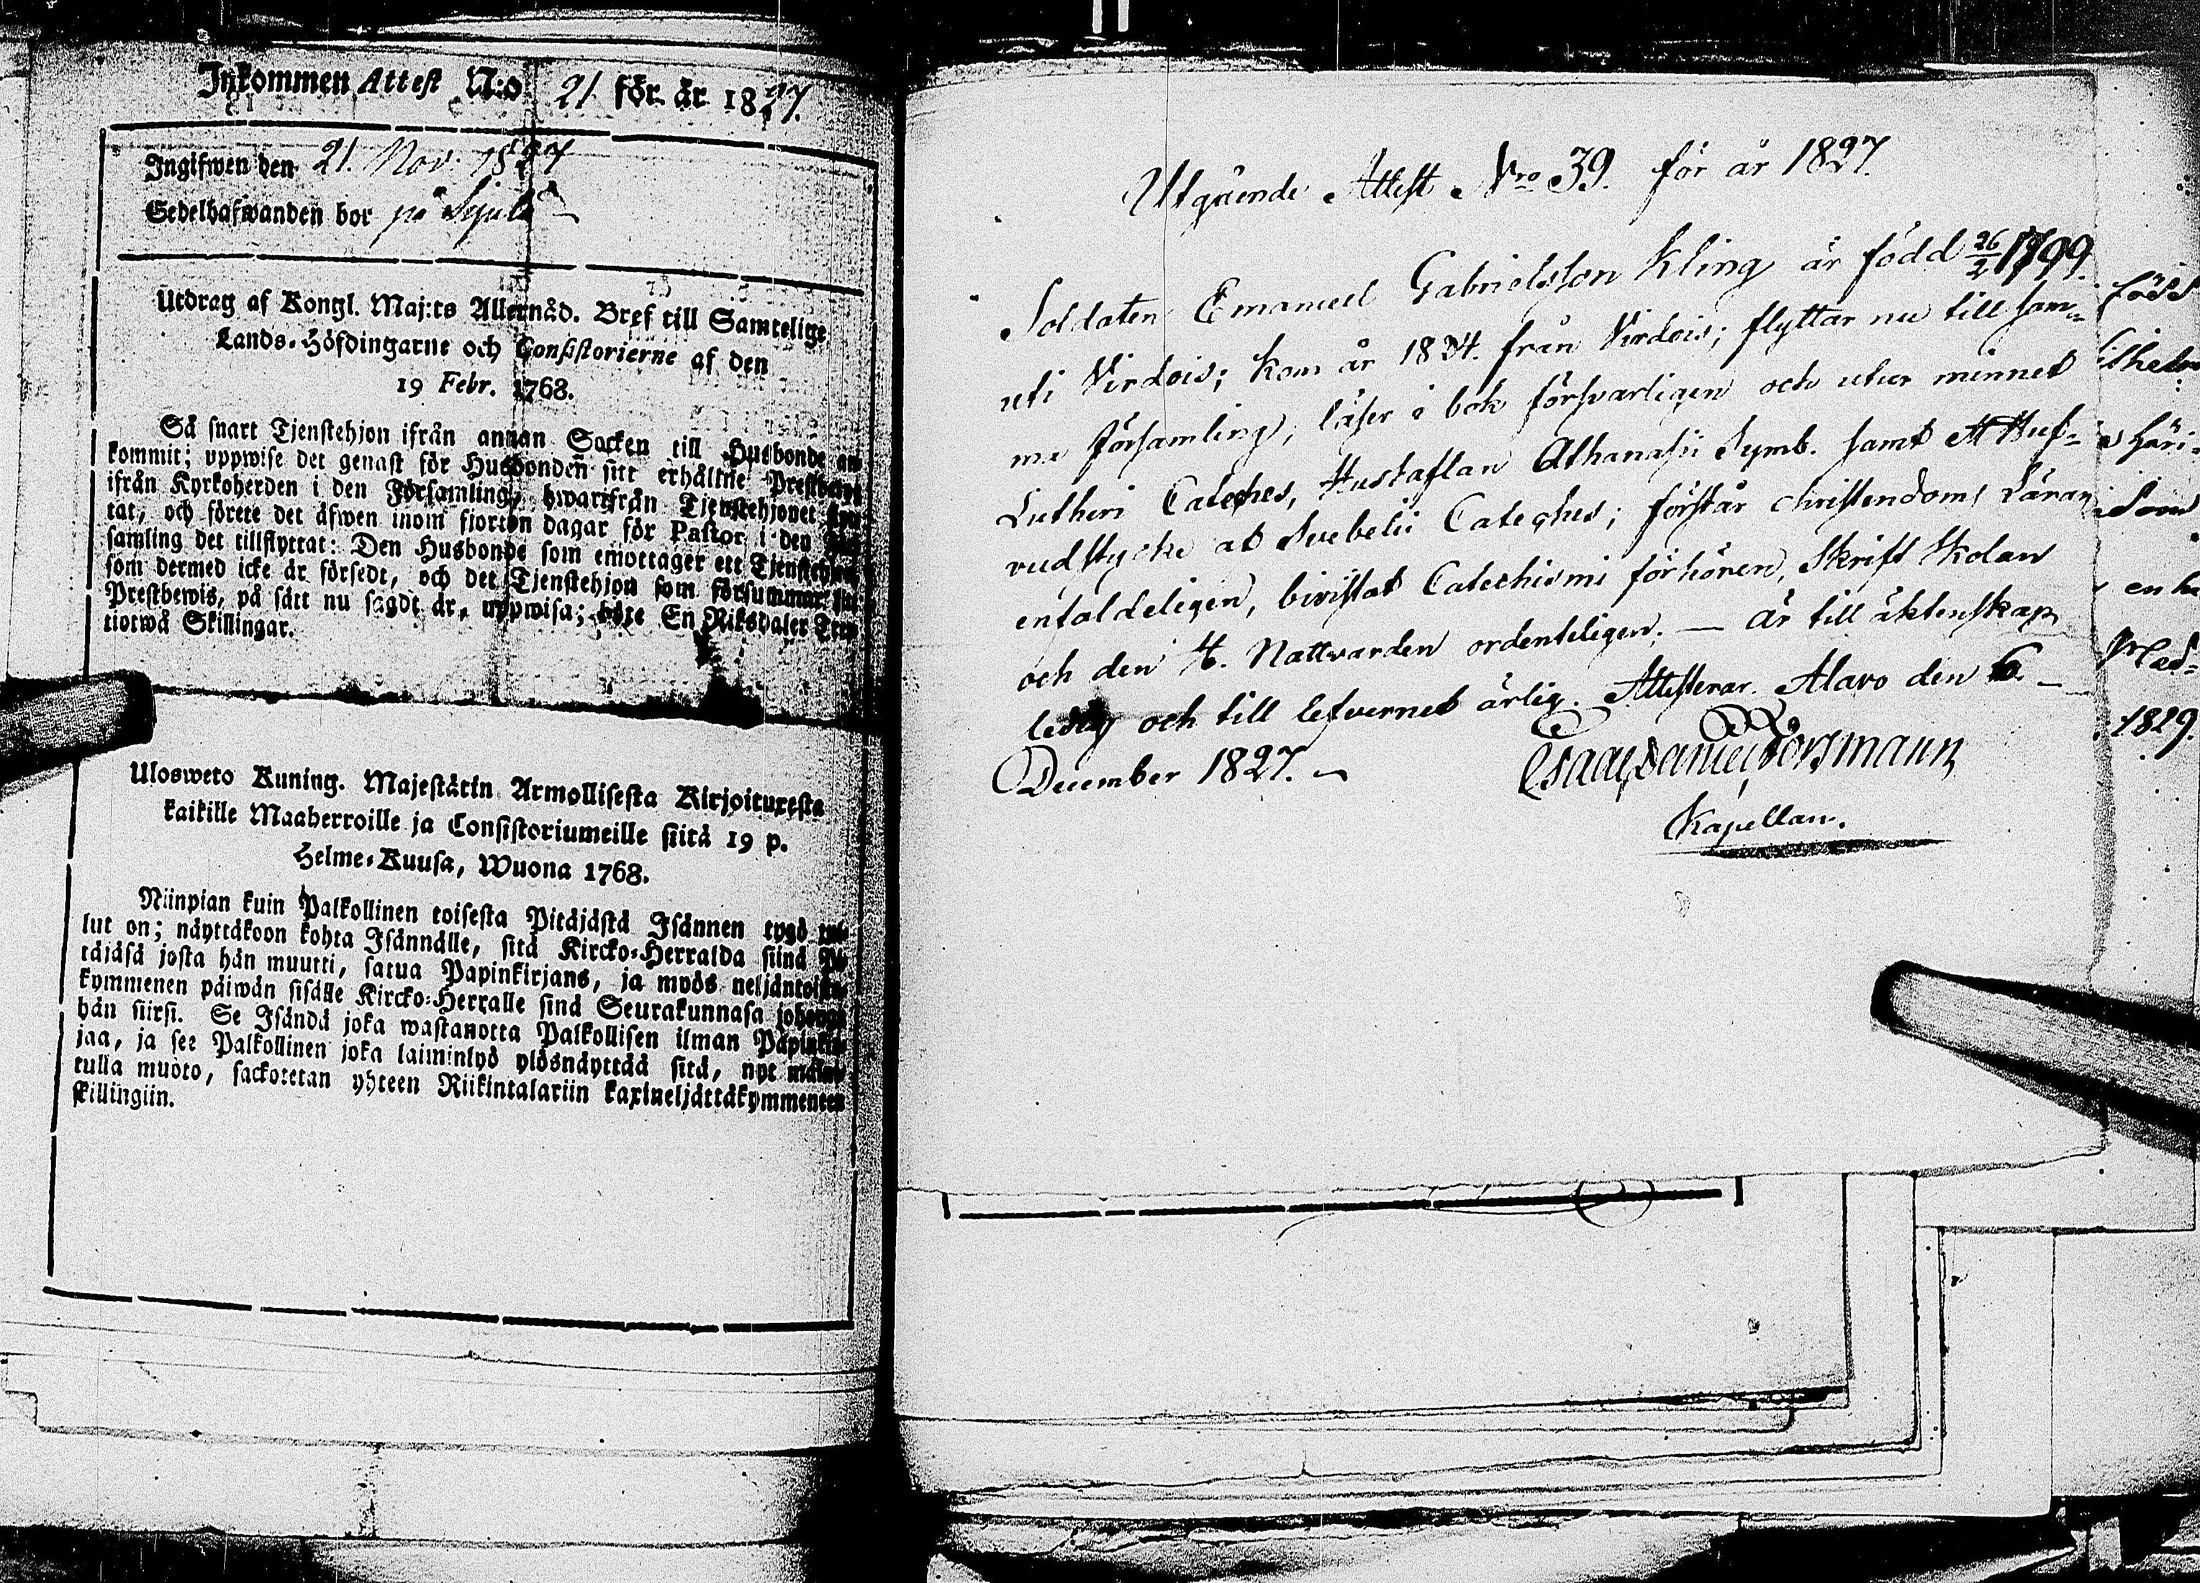 Inkommen Attest N:o 21 för år 1827.
Ingifwen den 21. Nov. 1827
Sedelhafwanden bor på
Utdrag af Kongl. Maj:ts Allernåd. Bref till Samtelige
Lands-Höfdingarne och Consistorierne af den
19 Febr. 1768.
Så snart Tjenstehjon ifrån annan Socken till Husbonde an-
kommit; uppwise det genast för Husbonden sitt erhållne Prestbewis
ifrån Kyrkoherden i den Församling, hwarifrån Tjenstehjonet
tat, och förete det äfwen inom fjorton dagar för Pastor i den
samling det tillflyttat: Den Husbonde som emottager ett Tjenstehjon
som dermed icke är försedt, och det Tjenstehjon som försummar
Prestbewis, på sätt nu sagdt är, uppwisa; böte En Riksdaler Tret-
tiotwå Skillingar.
Ulosweto Kuning. Majestätin Armollisesta Kirjoituxesta
kaikille Maaherroille ja Consistoriumeille siitä 19 p.
Helme-Kuusa, Wuona 1768.
Niinpian kuin Palkollinen toisesta Pitäjästä Isännen tygö tul-
lut on; näyttäkoon kohta Isännälle, sitä Kircko-Herralda siinä Pi-
täjäsä josta hän muutti, saatua Papinkirjans, ja myös neljäntoista-
kymmenen päiwän sisälle Kircko-Herralle sinä Seurakunnasa johonga
hän siirsi. Se Isändä joka wastanotta Palkollisen ilman Papinkir-
jaa, ja see Palkollinen joka laiminlyö ylösnäyttää sitä, nyt
tulla muoto, sackotetan yhteen Riikintalariin kaxineljättäkymmeneen
skillingiin.
Utgående Attest Nro 39. för år 1827.
Soldaten Emanuel Gabrielsson Kling är född 26/2 1799.
uti Virdois; kom år 1824. från Virdois; flyttar nu till sam-
ma församling; läser i bok försvarligen och utur minnet
Lutheri Cateches, Hustaflan Athanasii Symb. samt Huf-
vudstycke at Svebelii Cateches; förstår christendoms Läran
enfaldeligen, bivistat Catechismi förhören, Skrift Skolan
och den H. Nattvarden ordenteligen; — är till äktenskap
ledig och till lefvernet ärlig. Attesterar. Alavo den 6. —
December 1827. —
Esaac Daniel Forsmann
Kapellan.
född
en
Med-
1829.